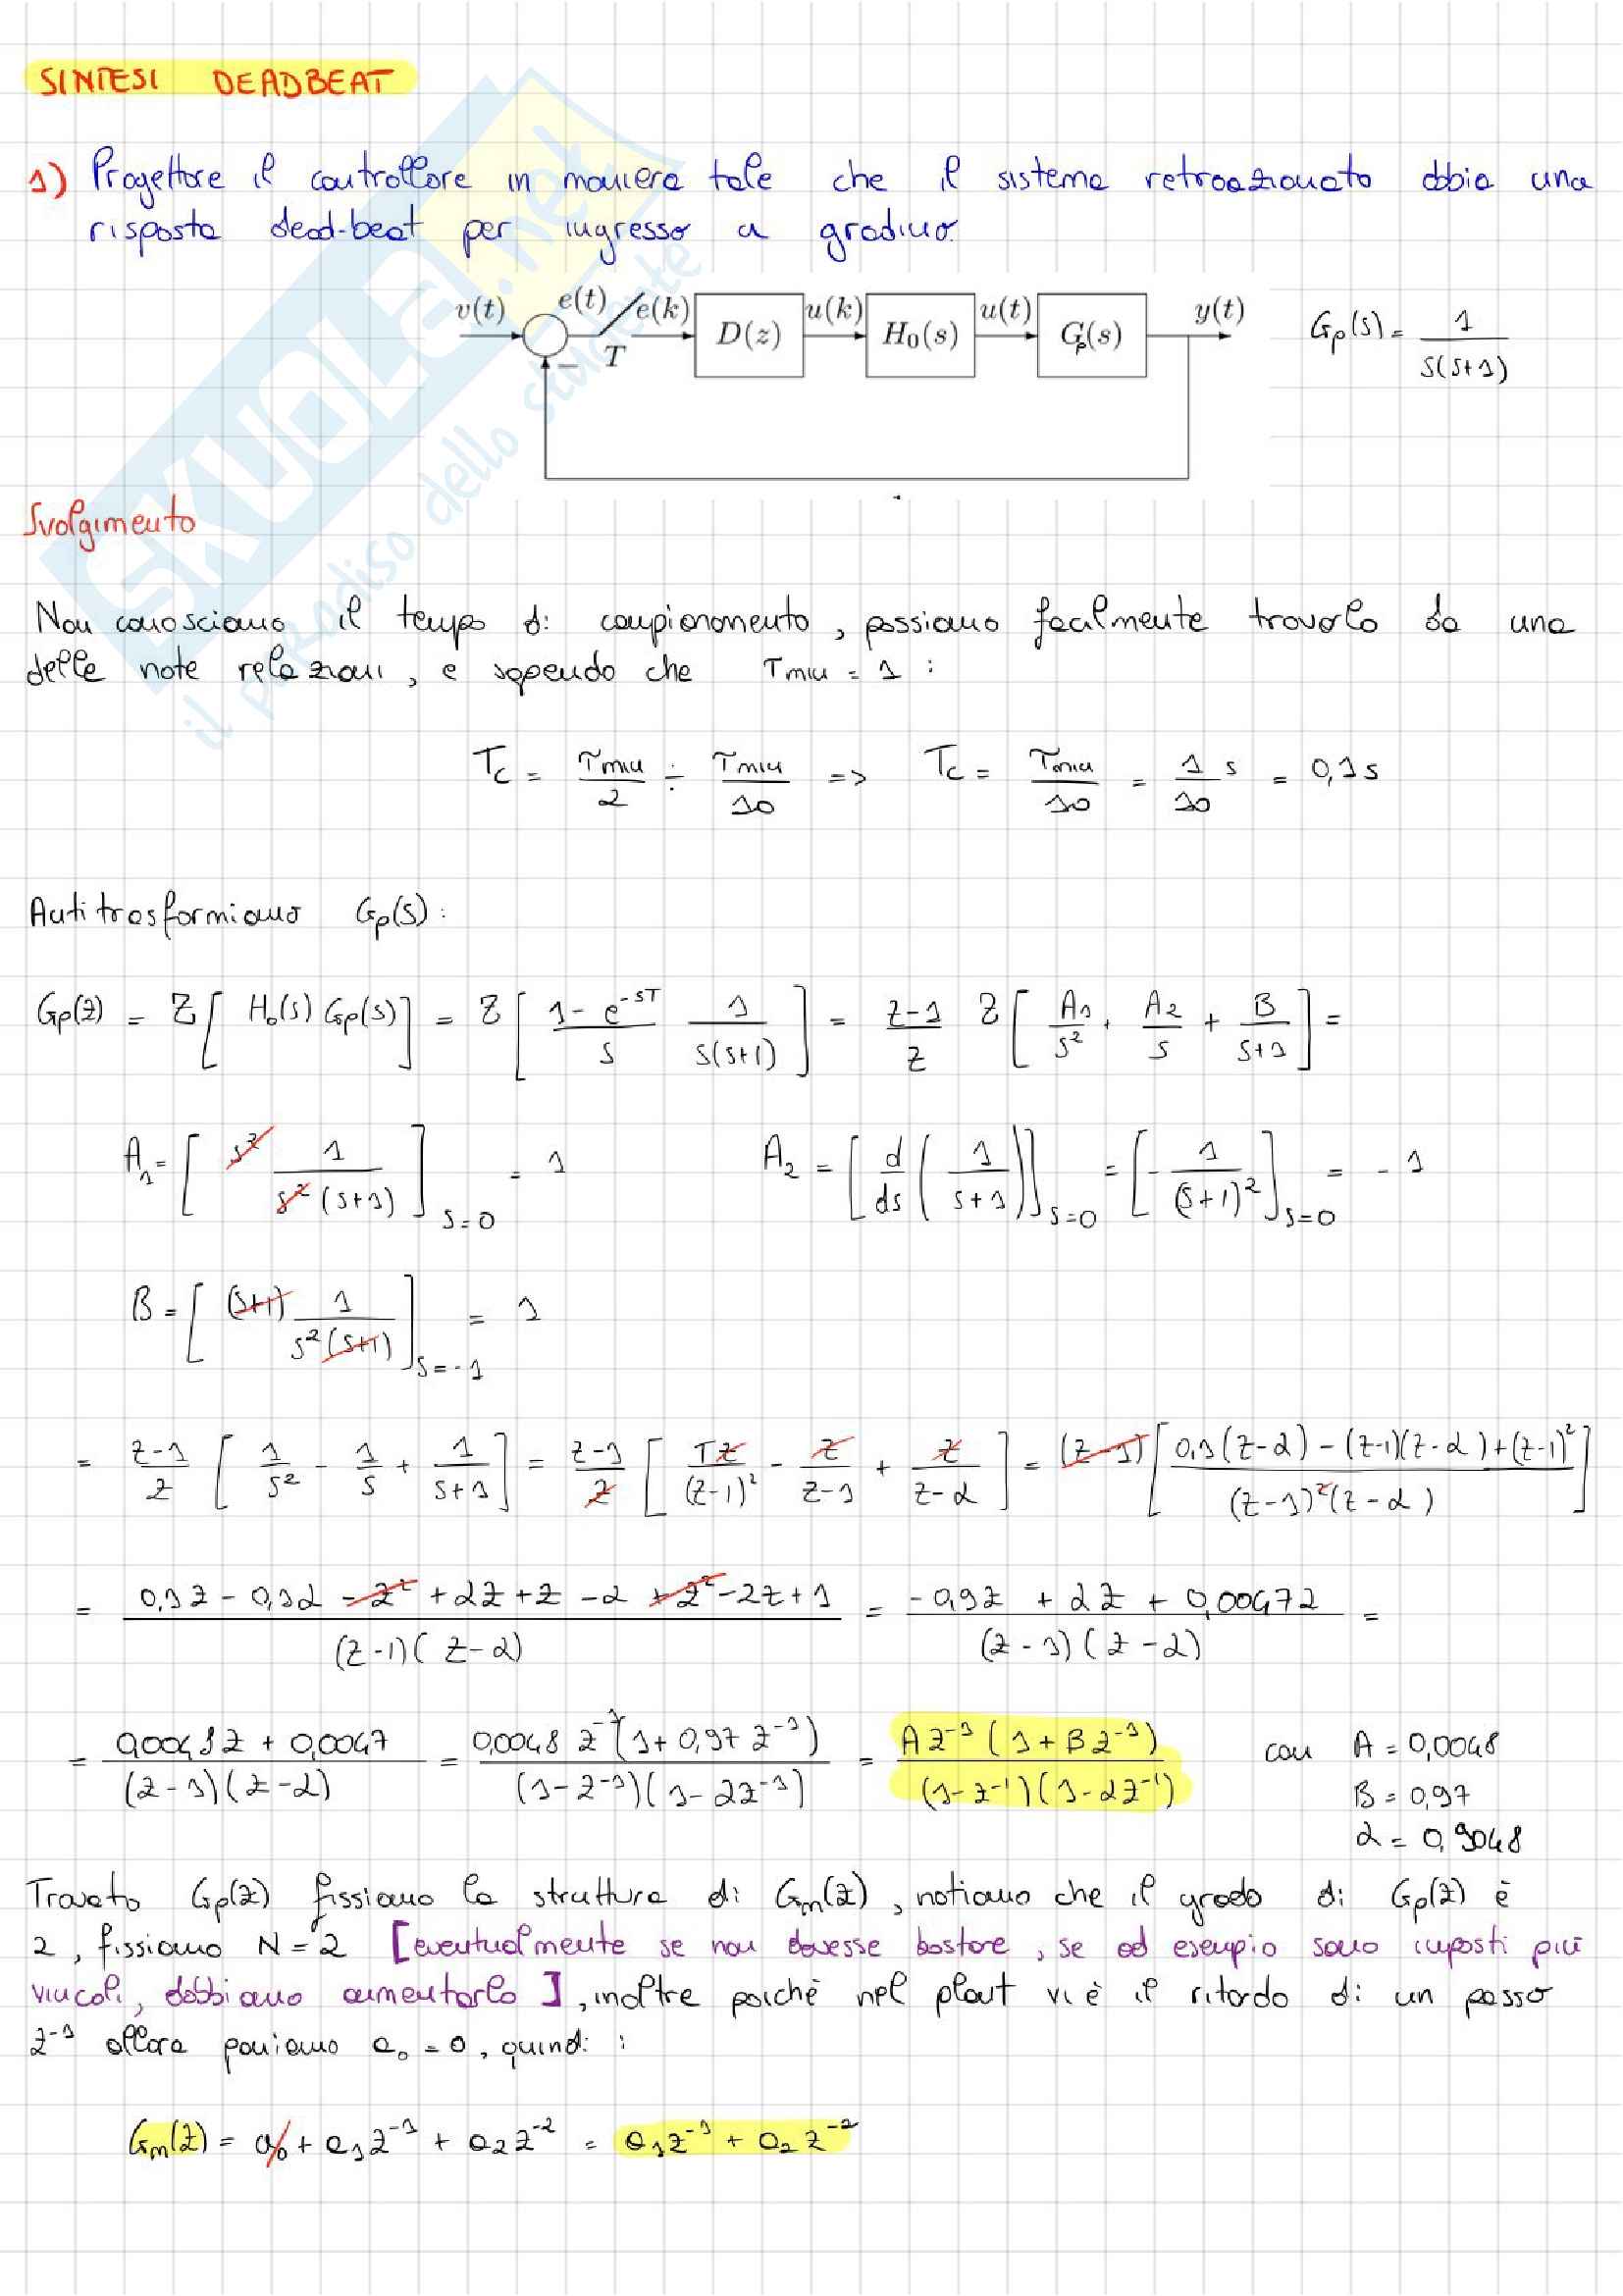 SINTESI DEADBEAT
1) Progettare il controllore in maniera tale che il sistema retroazionato abbia una
risposta dead-beat per ingresso a gradino.
v(t) e(t) e(k) T D(z) u(k) H₀(s) u(t) Gₚ(s) y(t) −
Gp(s) = 1 / s(s+1)
Svolgimento
Non conosciamo il tempo di campionamento, possiamo facilmente trovarlo da una
delle note relazioni, e sapendo che τmin = 1 :
Tc = τmin/2 ÷ τmin/10 => Tc = τmin/10 = 1/10 s = 0,1s
Antitrasformiamo Gp(s):
Gp(z) = Z[ H₀(s) Gp(s) ] = Z[ (1-e^-sT)/s 1/(s(s+1)) ] = (z-1)/z Z[ A₁/s² + A₂/s + B/(s+1) ] =
A₁ = [ s² 1/(s²(s+1)) ]s=0 = 1 A₂ = [ d/ds ( 1/(s+1) ) ]s=0 = [ - 1/(s+1)² ]s=0 = -1
B = [ (s+1) 1/(s²(s+1)) ]s=-1 = 1
= (z-1)/z [ 1/s² - 1/s + 1/(s+1) ] = (z-1)/z [ Tz/(z-1)² - z/(z-1) + z/(z-α) ] = (z-1) [ (0,1(z-α) - (z-1)(z-α) + (z-1)²) / ((z-1)²(z-α)) ]
= (0,1z - 0,1α - z² + αz + z - α + z² - 2z + 1) / ((z-1)(z-α)) = (-0,9z + αz + 0,00472) / ((z-1)(z-α)) =
= (0,0048z + 0,0047) / ((z-1)(z-α)) = 0,0048 z⁻¹(1 + 0,97 z⁻¹) / ((1-z⁻¹)(1-αz⁻¹)) = A z⁻¹(1 + B z⁻¹) / ((1-z⁻¹)(1-αz⁻¹)) con A = 0,0048
B = 0,97
α = 0,9048
Trovato Gp(z) fissiamo la struttura di Gm(z), notiamo che il grado di Gp(z) è
2, fissiamo N = 2 [eventualmente se non dovesse bastare, se ad esempio sono imposti più
vincoli, dobbiamo aumentarlo], inoltre poichè nel plant vi è il ritardo di un passo
z⁻¹ allora poniamo a₀ = 0, quindi :
Gm(z) = a₀ + a₁z⁻¹ + a₂z⁻² = a₁z⁻¹ + a₂z⁻²
SKUOLA.net
il paradiso dello studente